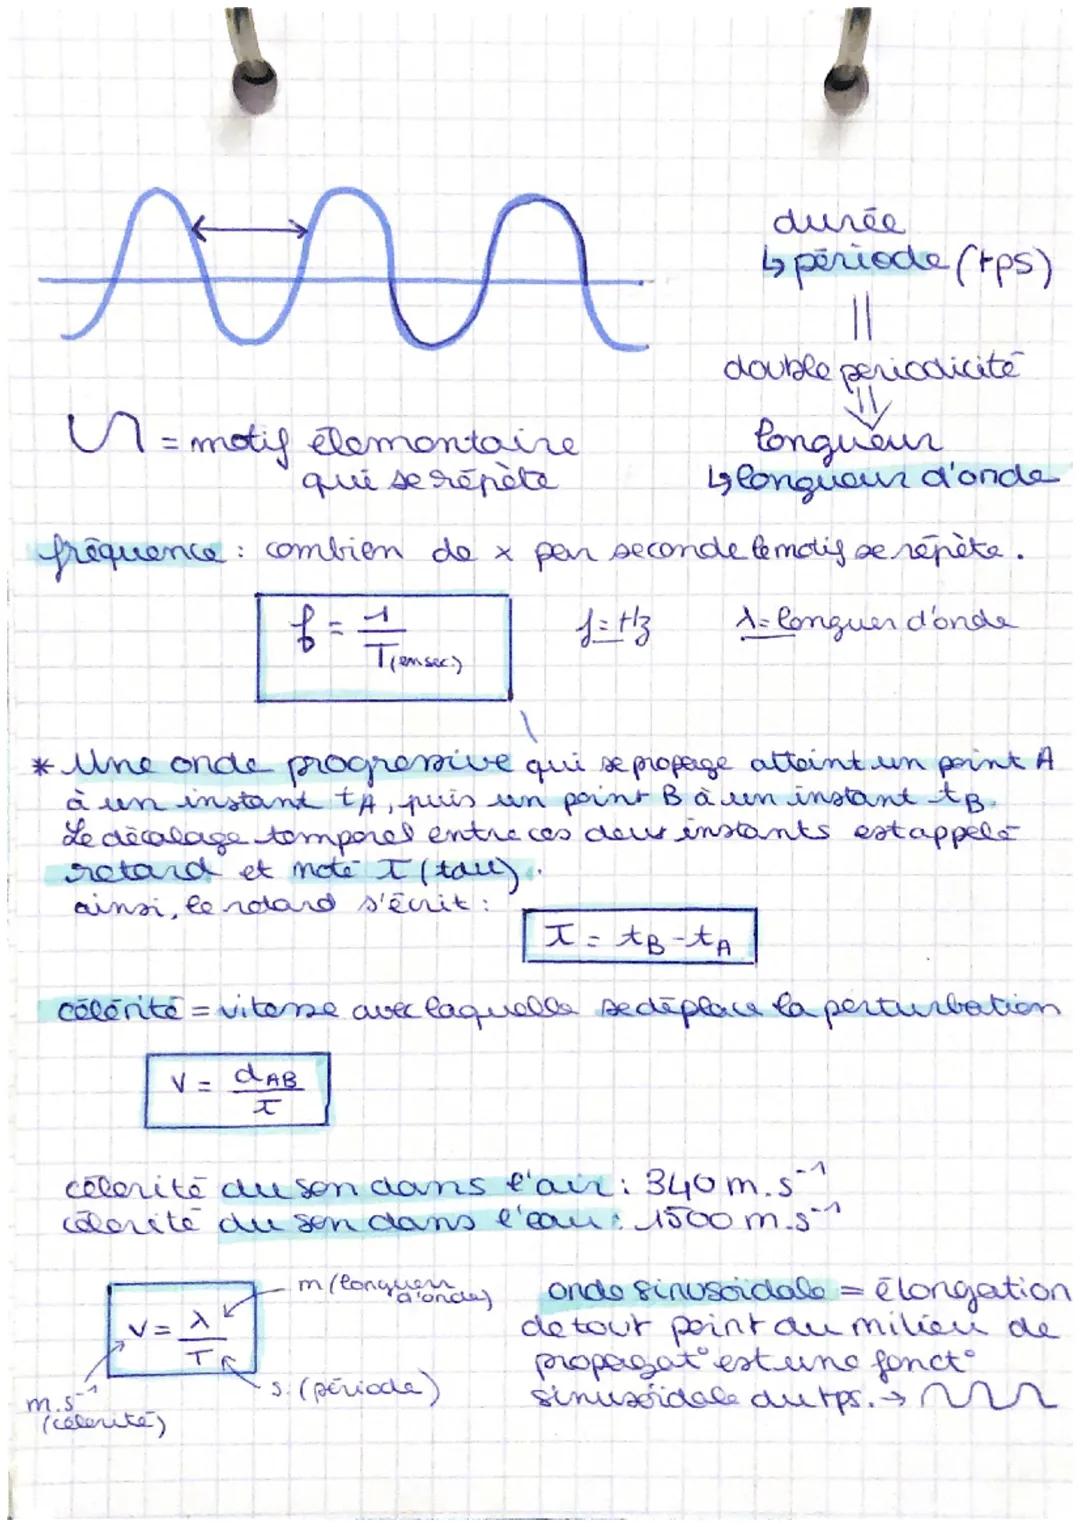 durée
↳ période (tps)
||
double periodicité
⇓
longueur
↳ longueur d'onde
= motif élementaire
qui se répète
fréquence : combien de x par seconde le motif se répète.
f = 1/T (en sec.)
f = Hz
λ = longuer d'onde
* Une onde progressive qui se propage atteint un point A
à un instant tA, puis un point B à un instant tB.
Le décalage temporel entre ces deux instants est appelé
retard et noté τ (tau).
ainsi, le retard s'écrit :
τ = tB - tA
célérité = vitesse avec laquelle se déplace la perturbation
v = dAB/τ
célerité du son dans l'air : 340 m.s⁻¹
célerité du son dans l'eau : 1500 m.s⁻¹
v = λ/T
m (longueur d'onde)
s. (période)
m.s⁻¹
(célerité)
onde sinusoïdale = élongation
de tout point du milieu de
propagat° est une fonct°
sinusoïdale du tps. →